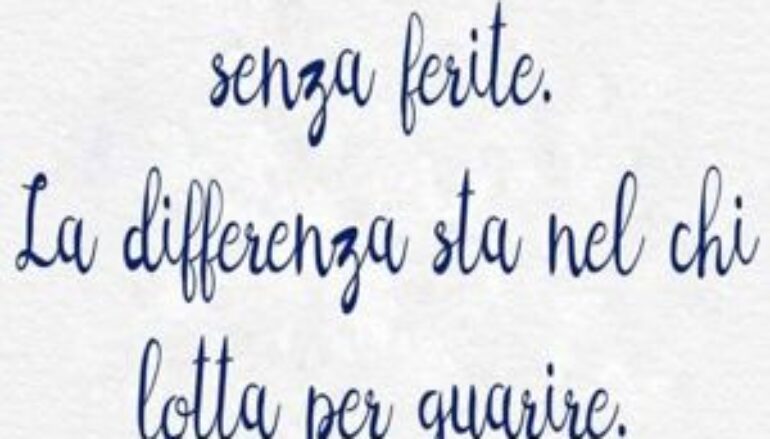 senza ferite.
La differenza sta nel chi
lotta per guarire.